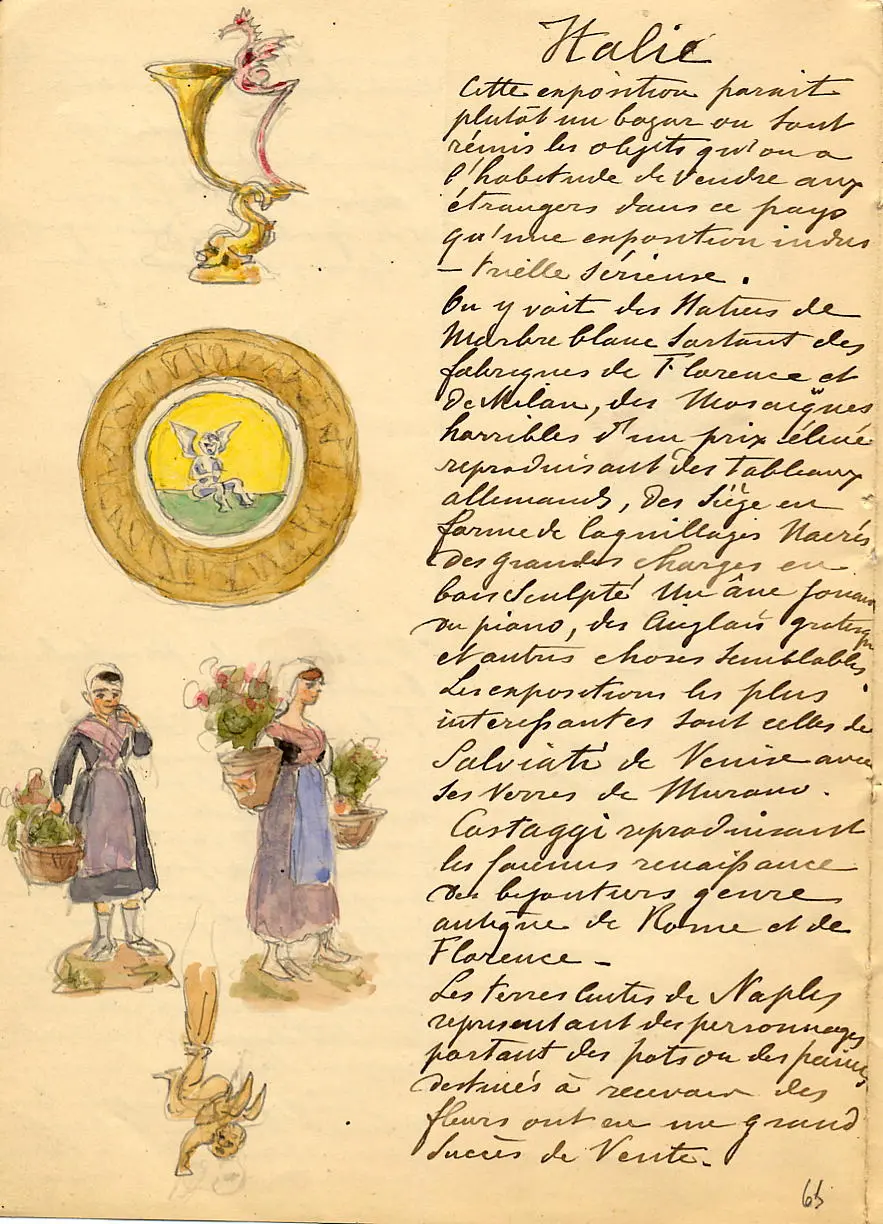 Italie
Cette exposition parait
plutôt un bazar ou sont
réunis les objets qu'on a
l'habitude de vendre aux
étrangers dans ce pays
qu'une exposition indus
– trielle sérieuse.
On y voit des statues de
Marbre blanc sortant des
fabriques de Florence et
de Milan, des Mosaïques
horribles d'un prix élevé
reproduisant des tableaux
allemands, des siège en
forme de coquillages Nacrés
des grandes charges en
bois sculpté Un âne jouant
du piano, des Anglais grotesques
et autres choses semblables.
Les expositions les plus
interessantes sont celles de
Salviati de Venise avec
ses verres de Murano.
Castaggi reproduisant
les renaissance
des bijoutiers genre
antique de Rome et de
Florence –
Les terres cuites de Naples
représentant des personnages
portant des pots ou des paniers
destinés à recevoir des
fleurs ont eu un grand
succès de Vente.
65